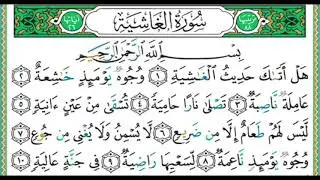 سُورَةُ الْغَاشِيَةِ
بِسْمِ اللَّهِ الرَّحْمَٰنِ الرَّحِيمِ
هَلْ أَتَىٰكَ حَدِيثُ الْغَٰشِيَةِ ١ وُجُوهٌ يَوْمَئِذٍ خَٰشِعَةٌ ٢
عَامِلَةٌ نَّاصِبَةٌ ٣ تَصْلَىٰ نَارًا حَامِيَةً ٤ تُسْقَىٰ مِنْ عَيْنٍ ءَانِيَةٍ ٥
لَّيْسَ لَهُمْ طَعَامٌ إِلَّا مِن ضَرِيعٍ ٦ لَّا يُسْمِنُ وَلَا يُغْنِى مِن جُوعٍ ٧
وُجُوهٌ يَوْمَئِذٍ نَّاعِمَةٌ ٨ لِّسَعْيِهَا رَاضِيَةٌ ٩ فِى جَنَّةٍ عَالِيَةٍ ١٠